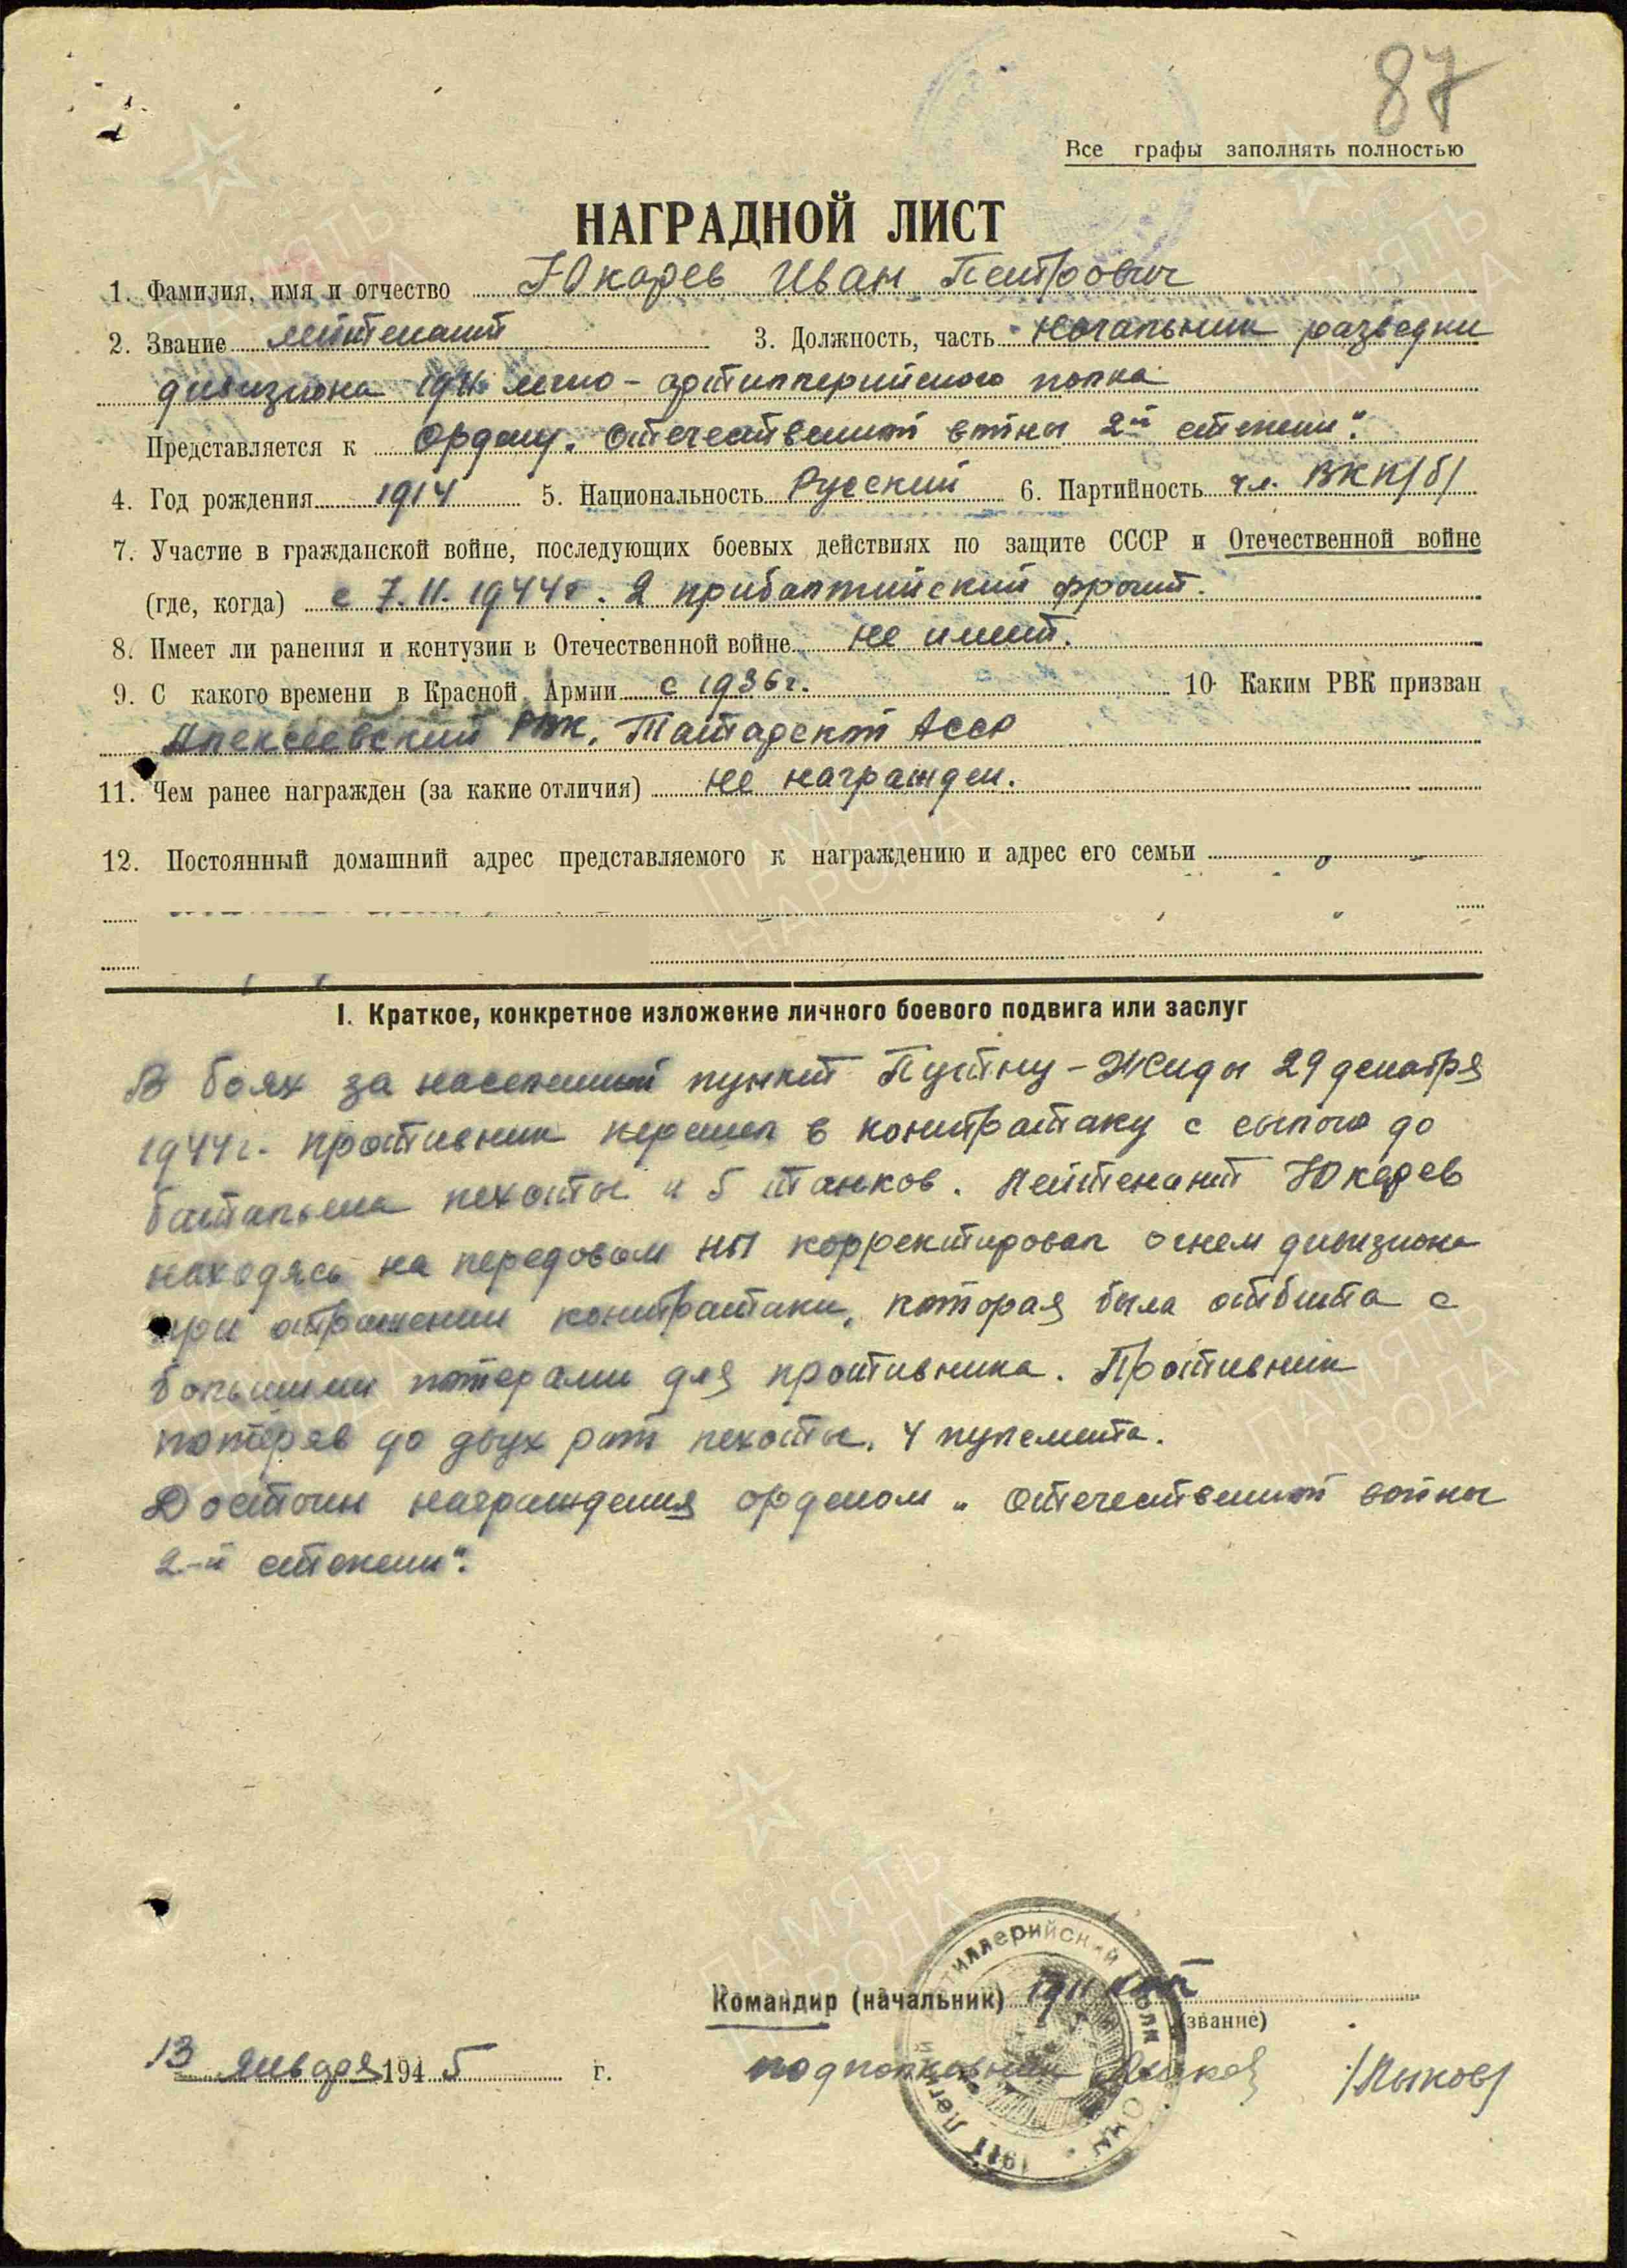 87
Все графы заполнять полностью
НАГРАДНОЙ ЛИСТ
1. Фамилия, имя и отчество Юкарев Иван Петрович
2. Звание лейтенант 3. Должность, часть Начальник разведки
дивизиона 1911 легко-артиллерийского полка
Представляется к Ордену „Отечественной войны 2й степени“.
4. Год рождения 1914 5. Национальность Русский 6. Партийность чл. ВКП/б/
7. Участие в гражданской войне, последующих боевых действиях по защите СССР и Отечественной войне
(где, когда) с 7.11.1944г. 2 прибалтийский фронт.
8. Имеет ли ранения и контузии в Отечественной войне не имеет.
9. С какого времени в Красной Армии с 1936г. 10 Каким РВК призван
Алексеевский РВК, Татарской АССР
11. Чем ранее награжден (за какие отличия) не награжден.
12. Постоянный домашний адрес представляемого к награждению и адрес его семьи
I. Краткое, конкретное изложение личного боевого подвига или заслуг
В боях за населенный пункт Путну-Жиды 29 декабря
1944г. противник перешел в контратаку с силою до
батальона пехоты и 5 танков. Лейтенант Юкарев
находясь на передовом НП корректировал огнем дивизиона
при отражении контратаки, которая была отбита с
большими потерами для противника. Противник
потеряв до двух рот пехоты, 4 пулемета.
Достоин награждения орденом „Отечественной войны
2-й степени“.
Командир (начальник) 1911 лап
(звание)
13 января 1945 г. подполковник Лыков /Лыков/
1911 Легкий Артиллерийский Полк
ПАМЯТЬ
НАРОДА